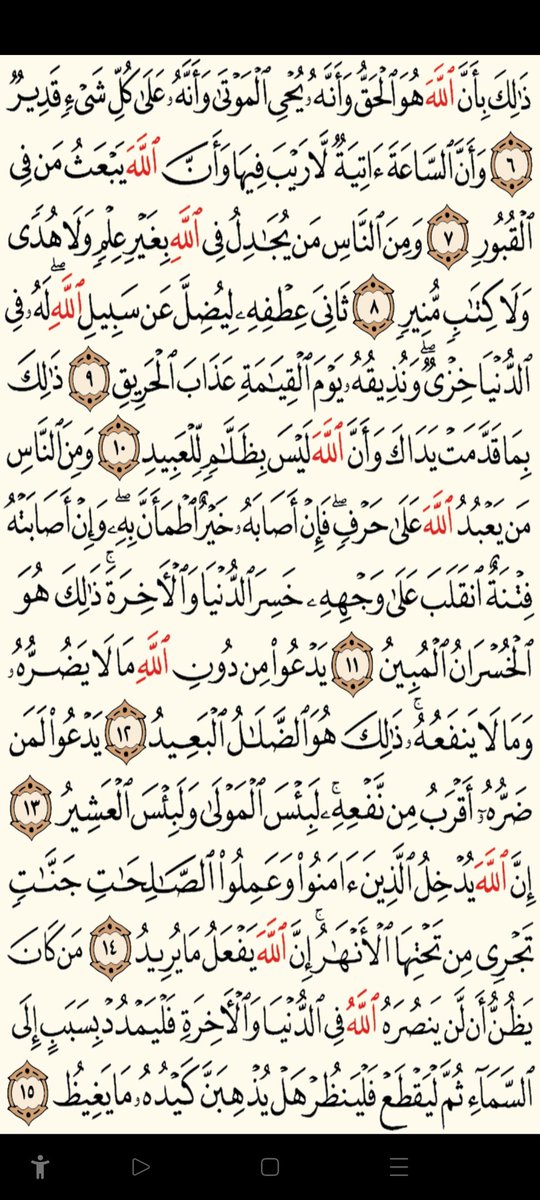 ذَٰلِكَ بِأَنَّ ٱللَّهَ هُوَ ٱلۡحَقُّ وَأَنَّهُۥ يُحۡيِ ٱلۡمَوۡتَىٰ وَأَنَّهُۥ عَلَىٰ كُلِّ شَيۡءٖ قَدِيرٞ
٦ وَأَنَّ ٱلسَّاعَةَ ءَاتِيَةٞ لَّا رَيۡبَ فِيهَا وَأَنَّ ٱللَّهَ يَبۡعَثُ مَن فِي
ٱلۡقُبُورِ ٧ وَمِنَ ٱلنَّاسِ مَن يُجَٰدِلُ فِي ٱللَّهِ بِغَيۡرِ عِلۡمٖ وَلَا هُدٗى
وَلَا كِتَٰبٖ مُّنِيرٖ ٨ ثَانِيَ عِطۡفِهِۦ لِيُضِلَّ عَن سَبِيلِ ٱللَّهِۖ لَهُۥ فِي
ٱلدُّنۡيَا خِزۡيٞۖ وَنُذِيقُهُۥ يَوۡمَ ٱلۡقِيَٰمَةِ عَذَابَ ٱلۡحَرِيقِ ٩ ذَٰلِكَ
بِمَا قَدَّمَتۡ يَدَاكَ وَأَنَّ ٱللَّهَ لَيۡسَ بِظَلَّٰمٖ لِّلۡعَبِيدِ ١٠ وَمِنَ ٱلنَّاسِ
مَن يَعۡبُدُ ٱللَّهَ عَلَىٰ حَرۡفٖۖ فَإِنۡ أَصَابَهُۥ خَيۡرٌ ٱطۡمَأَنَّ بِهِۦۖ وَإِنۡ أَصَابَتۡهُ
فِتۡنَةٌ ٱنقَلَبَ عَلَىٰ وَجۡهِهِۦ خَسِرَ ٱلدُّنۡيَا وَٱلۡأٓخِرَةَۚ ذَٰلِكَ هُوَ
ٱلۡخُسۡرَانُ ٱلۡمُبِينُ ١١ يَدۡعُواْ مِن دُونِ ٱللَّهِ مَا لَا يَضُرُّهُۥ
وَمَا لَا يَنفَعُهُۥۚ ذَٰلِكَ هُوَ ٱلضَّلَٰلُ ٱلۡبَعِيدُ ١٢ يَدۡعُواْ لَمَن
ضَرُّهُۥٓ أَقۡرَبُ مِن نَّفۡعِهِۦۚ لَبِئۡسَ ٱلۡمَوۡلَىٰ وَلَبِئۡسَ ٱلۡعَشِيرُ ١٣
إِنَّ ٱللَّهَ يُدۡخِلُ ٱلَّذِينَ ءَامَنُواْ وَعَمِلُواْ ٱلصَّٰلِحَٰتِ جَنَّٰتٖ
تَجۡرِي مِن تَحۡتِهَا ٱلۡأَنۡهَٰرُۚ إِنَّ ٱللَّهَ يَفۡعَلُ مَا يُرِيدُ ١٤ مَن كَانَ
يَظُنُّ أَن لَّن يَنصُرَهُ ٱللَّهُ فِي ٱلدُّنۡيَا وَٱلۡأٓخِرَةِ فَلۡيَمۡدُدۡ بِسَبَبٍ إِلَى
ٱلسَّمَآءِ ثُمَّ لۡيَقۡطَعۡ فَلۡيَنظُرۡ هَلۡ يُذۡهِبَنَّ كَيۡدُهُۥ مَا يَغِيظُ ١٥